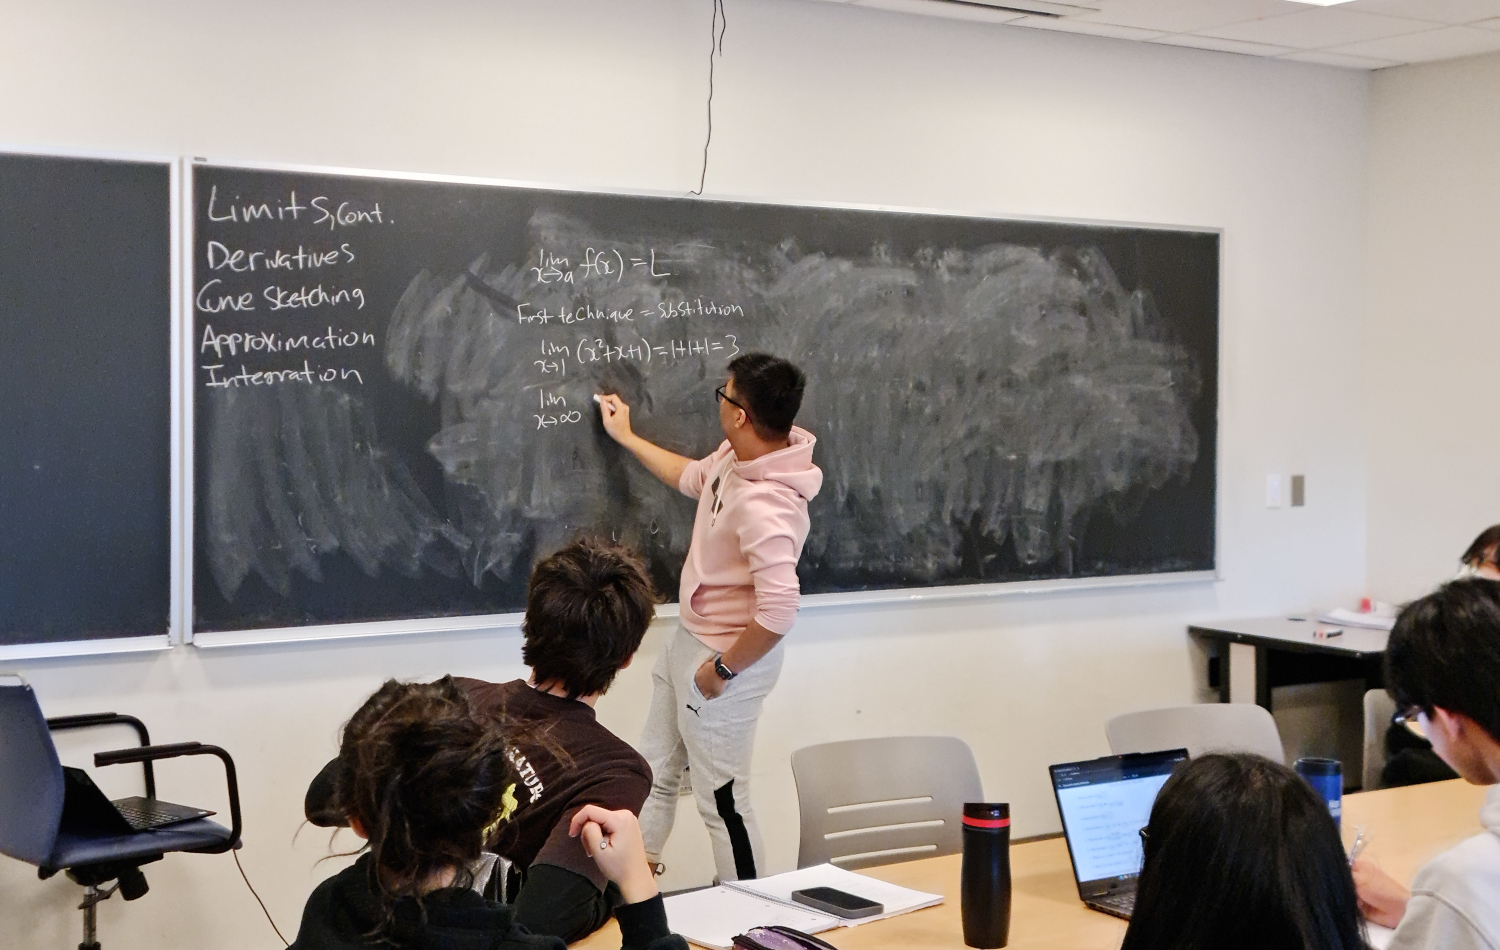 Limits, Cont.
Derivatives
Curve Sketching
Approximation
Integration
lim x→a f(x) = L
First technique = substitution
lim x→1 (x²+x+1) = 1+1+1 = 3
lim x→∞